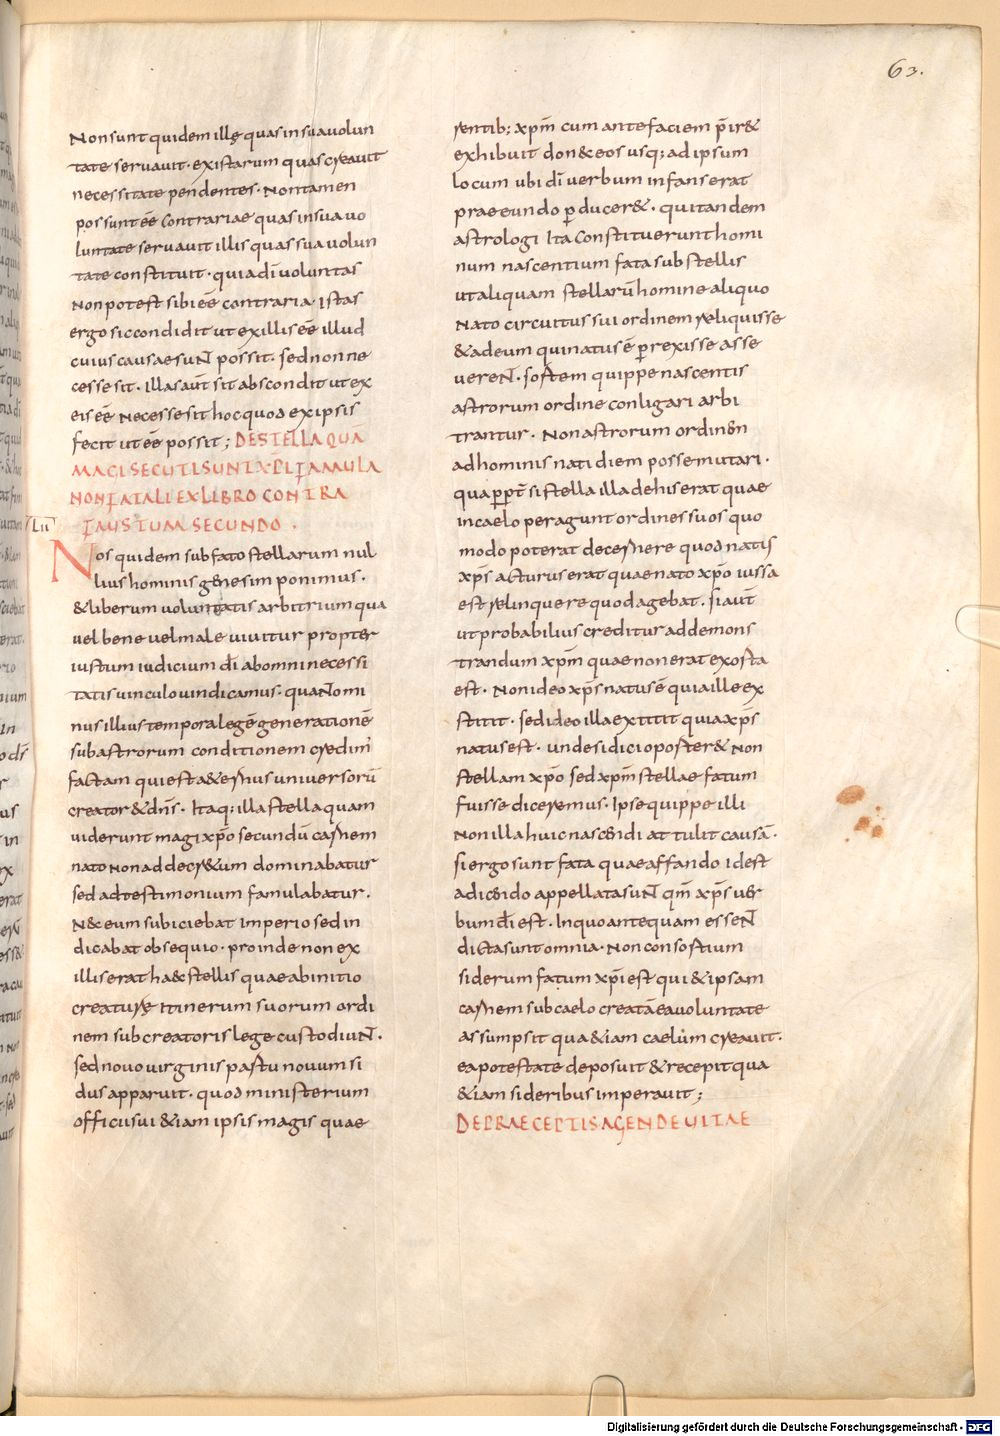 63.
Non sunt quidem illę quas in sua volun
tate servavit · ex istarum quas creavit
necessitate pendentes · Non tamen
possunt eē contrariae quas in sua vo
luntate servavit illis quas sua volun
tate constituit · quia dī voluntas
Non potest sibi eē contraria · Istas
ergo sic condidit ut ex illis eē illud
cuius causae suNt possit · sed non ne
cesse sit · illas aūt sit abscondit ut ex
eis eē Necesse sit hoc quod ex ipsis
fecit ut eē possit ;
DE STELLA QUĀ
MAGI SECUTI SUNT XPI FAMULA
NON FATALI EX LIBRO CONTRA
FAUSTUM SECUNDO .
LII
Nos quidem sub fato stellarum nul
lius hominis genesim ponimus .
& liberum voluntatis arbitrium qua
vel bene vel male vivitur propter
iustum iudicium dī ab omni necessi
tatis vinculo vindicamus · quaNto mi
nus illius temporalē gē generationē
sub astrorum conditionem credim'
factam qui est a&ernus universorū
creator & dn̄s · Itaq; illa stella quam
viderunt magi xp̄o secundū carnem
nato Non ad decr&um dominabatur
sed ad testimonium famulabatur .
N& eum subiciebat Imperio sed in
dicabat obsequio · proinde non ex
illis erat ha&c stellis quae ab initio
creaturę Itinerum suorum ordi
nem sub creatoris lege custodiuNt ·
sed novo virginis partu novum si
dus apparuit · quod ministerium
officii sui &iam ipsis magis quae
rentib; xp̄m cum ante faciem p̄ir&
exhibuit don& eos usq; ad ipsum
locum ubi dī verbum infans erat
praeeundo p̄ducer& · qui tandem
astrologi Ita Constituerunt homi
num nascentium fata sub stellis
ut aliquam stellarū homine aliquo
Nato circuitus sui ordinem reliquisse
& ad eum qui natus ē p̄rrexisse asse
vereNt · sortem quippe nascentis
astrorum ordine conligari arbi
trantur · Non astrorum ordinen
ad hominis nati diem posse mutari ·
quapp̄t si stella illa de his erat quae
in caelo peragunt ordines suos quo
modo poterat decernere quod natis
xp̄s acturus erat quae nato xp̄o iussa
est relinquere quod agebat · Si aūt
ut probabilius creditur ad demons
trandum xp̄m quae non erat exorta
est · Non ideo xp̄s natus ē quia ille ex
stitit · sed ideo illa extitit quia xp̄s
natus est · unde si dici oporter& Non
stellam xp̄o sed xp̄m stellae fatum
fuisse diceremus · Ipse quippe illi
Non illa huic nascendi attulit causā ·
si ergo sunt fata quae a ffando id est
a dicendo appellata suNt qm̄ xp̄s ver
bum dī est · In quo antequam esseNt
dicta sunt omnia · Non consortium
siderum fatum xp̄i est qui & ipsam
carnem sub caelo creatā ea voluntate
assumpsit qua &iam caelum creavit ·
ea potestate deposuit & recepit qua
&iam sideribus imperavit ;
DE PRAECEPTIS AGENDE UITAE
Digitalisierung gefördert durch die Deutsche Forschungsgemeinschaft - DFG